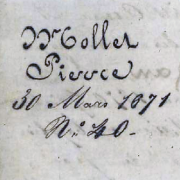 Mollet
Pierre
30 Mars 1871
N: 40.